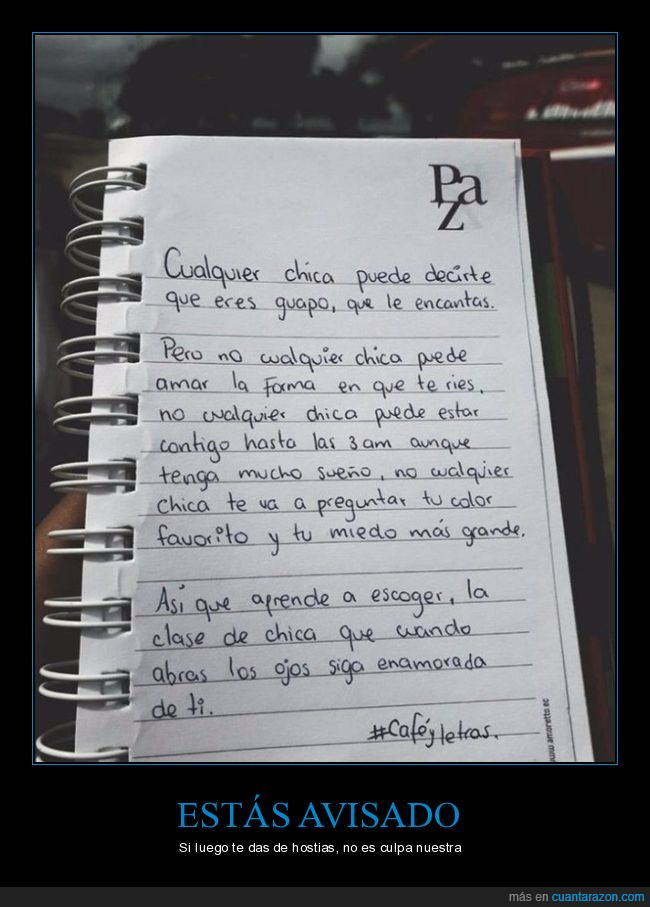 Paz
Cualquier chica puede decirte
que eres guapo, que le encantas.
Pero no cualquier chica puede
amar la forma en que te ries,
no cualquier chica puede estar
contigo hasta las 3 am aunque
tenga mucho sueño, no cualquier
chica te va a preguntar tu color
favorito y tu miedo más grande.
Así que aprende a escoger, la
clase de chica que cuando
abras los ojos siga enamorada
de ti.
#Caféyletras.
www.amoretto.ec
ESTÁS AVISADO
Si luego te das de hostias, no es culpa nuestra
más en cuantarazon.com